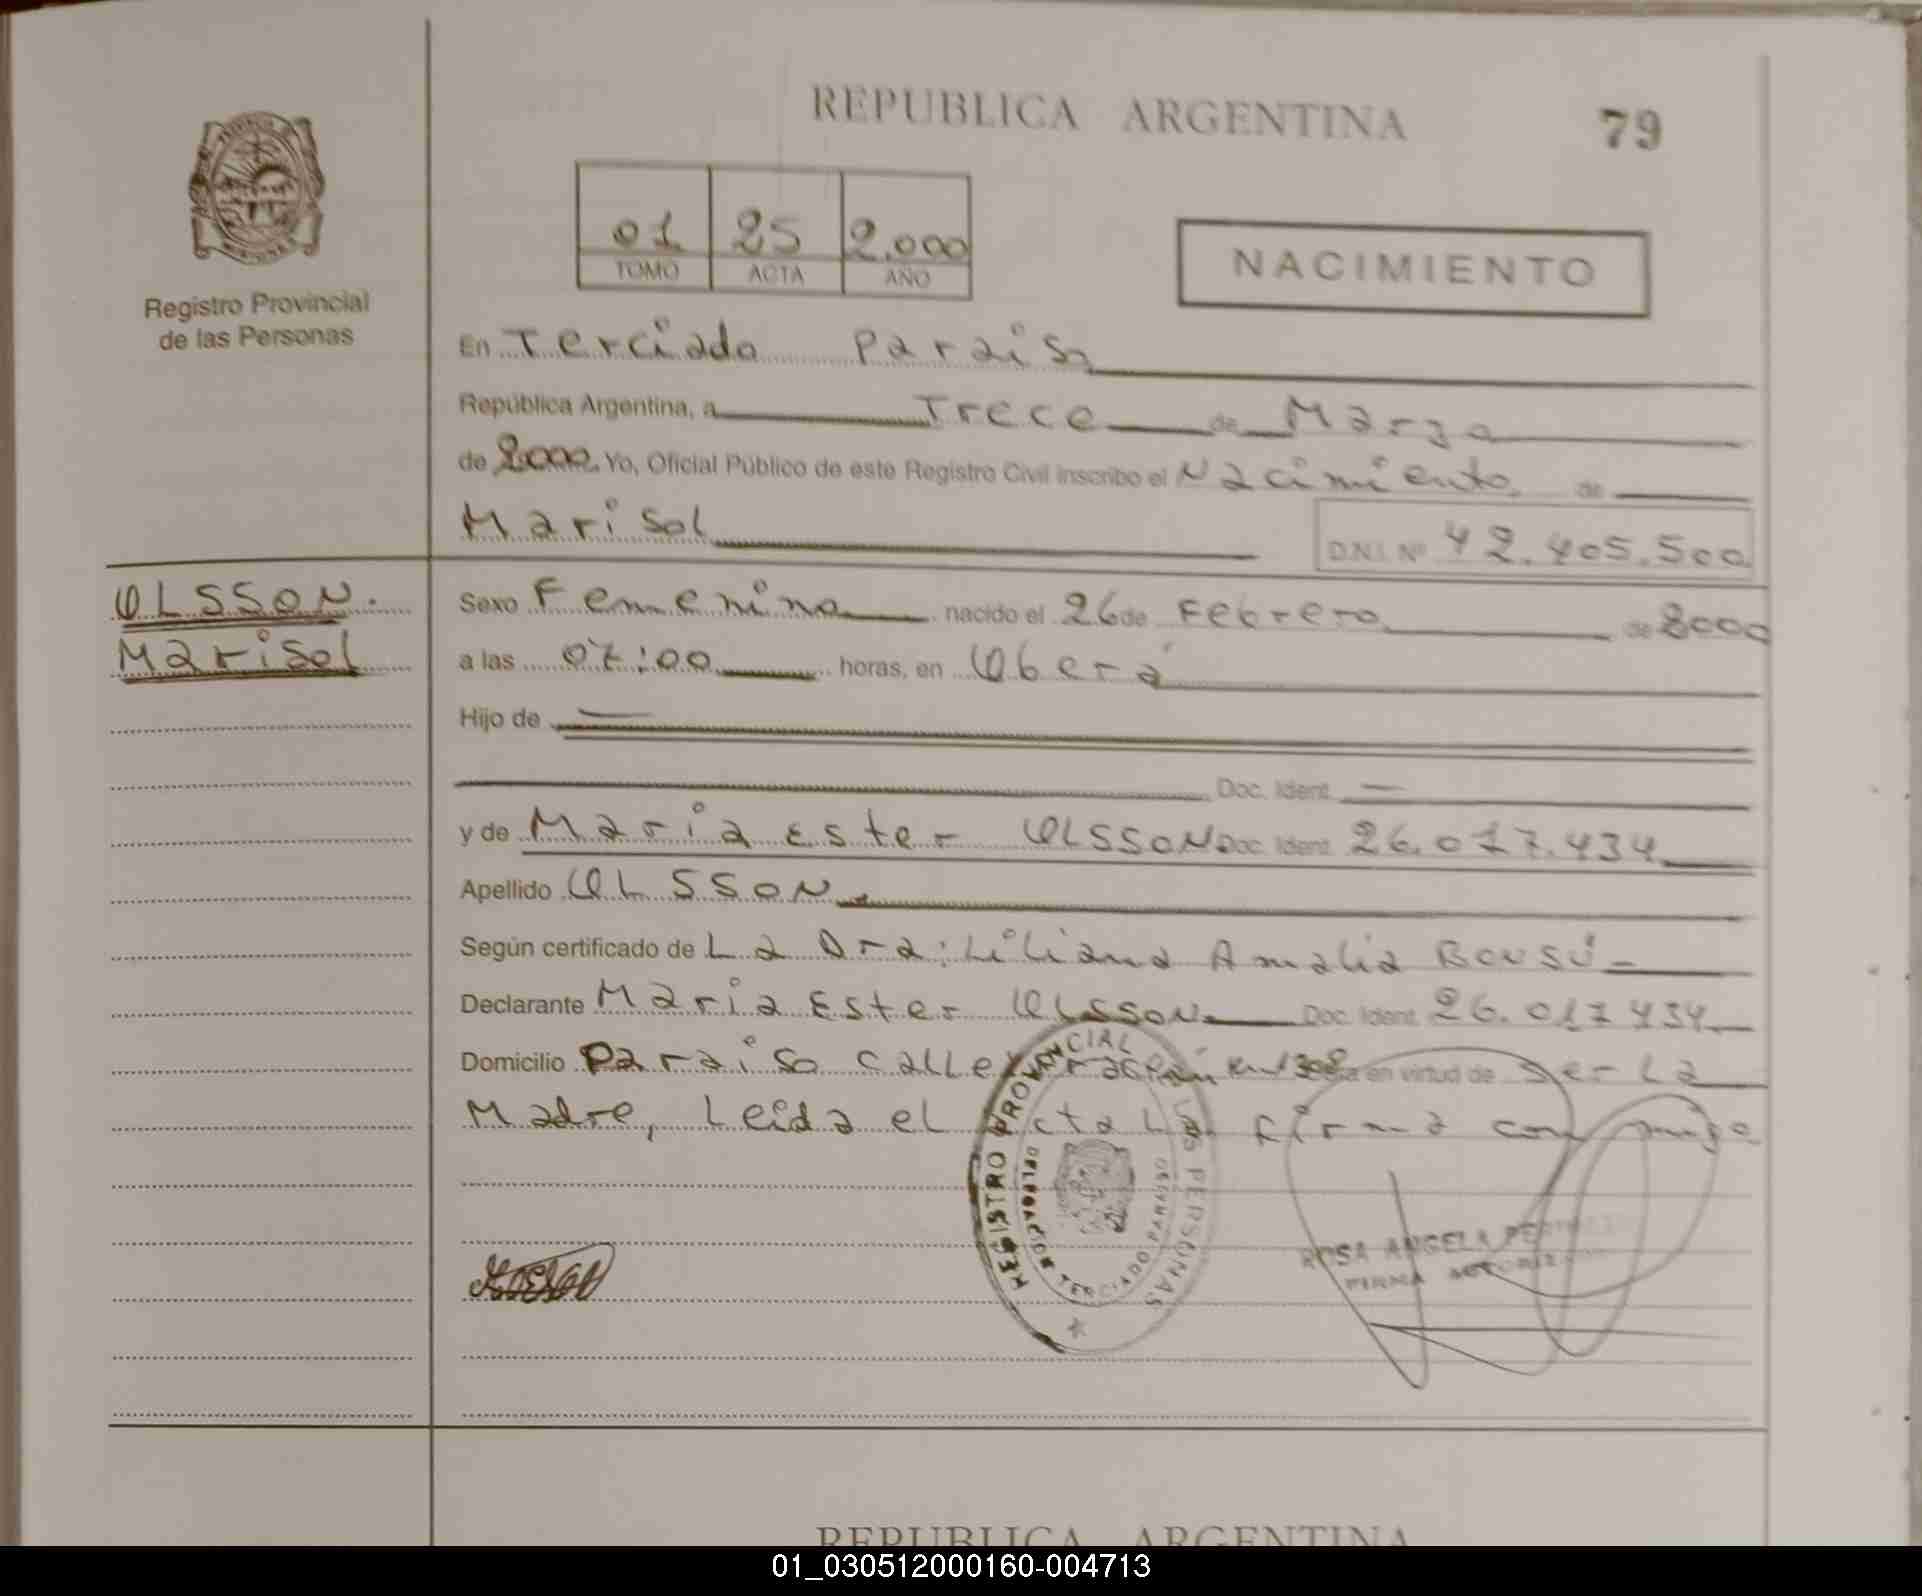 REPUBLICA ARGENTINA
79
01 25 2.000
TOMO ACTA AÑO
NACIMIENTO
Registro Provincial
de las Personas
En Terciado Paraiso
República Argentina, a Trece de Marzo
de 2000. Yo, Oficial Público de este Registro Civil inscribo el Nacimiento de
Marisol D.N.I. Nº 42.405.500
OLSSON.
Marisol
Sexo Femenino nacido el 26 de Febrero de 2000
a las 07:00 horas, en Oberá
Hijo de
Doc. Ident.
y de Maria Ester OLSSON Doc. Ident. 26.017.434
Apellido OLSSON
Según certificado de La Dra: Liliana Amalia
Declarante Maria Ester OLSSON Doc. Ident. 26.017.434
Domicilio Paraiso calle en virtud de Ser La
Madre, Leida el Acta La firma con migo
REGISTRO PROVINCIAL LAS PERSONAS
DELEGACION TERCIADO PARAISO
ROSA ANGELA
FIRMA AUTORIZADA
REPUBLICA ARGENTINA
01_030512000160-004713